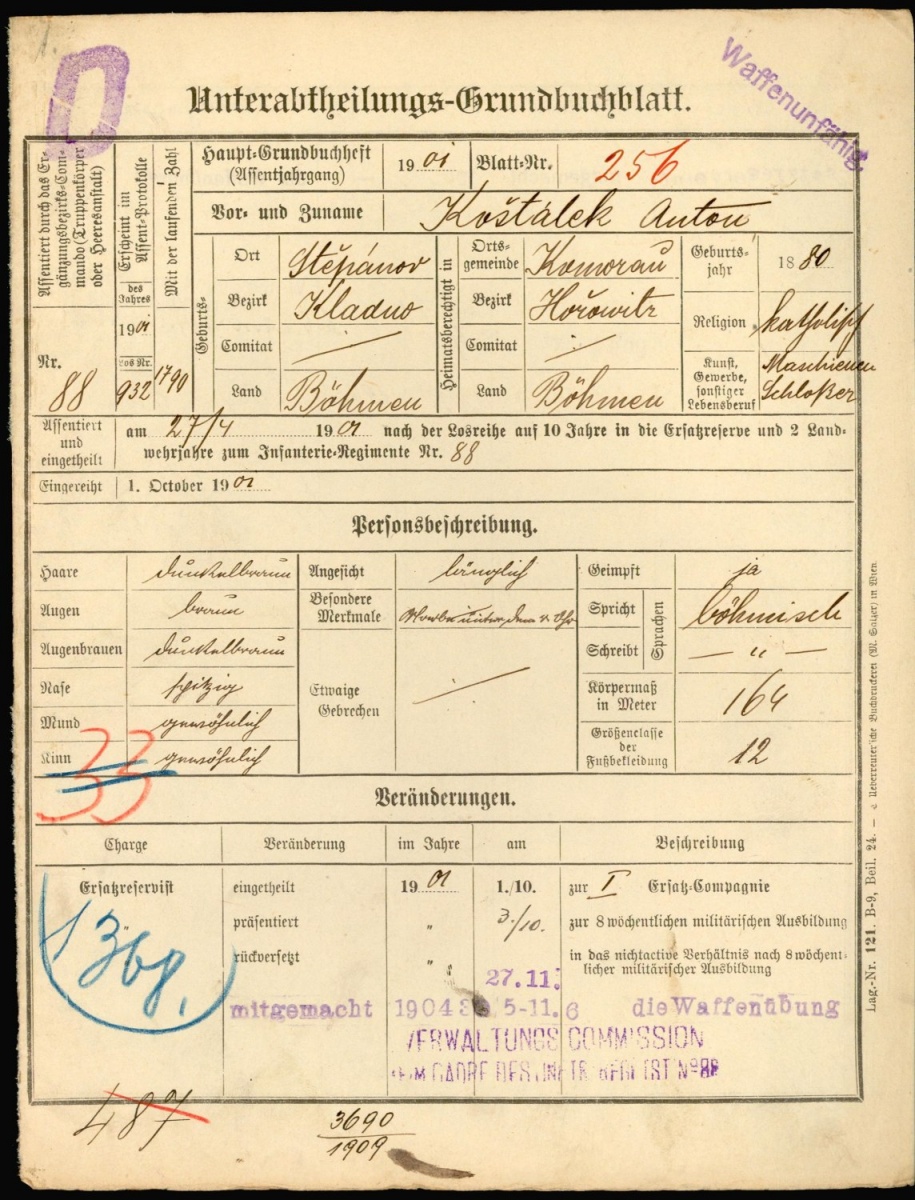 D
Waffenunfähig
Unterabtheilungs-Grundbuchblatt.
Assentiert durch das Er-
gänzungsbezirks-Com-
mando (Truppenkörper
oder Heeresanstalt)
Nr.
88
Erscheint im
Assent-Protokolle
des
Jahres
1901
Los Nr.
932
Mit der laufenden Zahl
1790
Haupt-Grundbuchheft
(Assentjahrgang)
1901
Blatt-Nr.
256
Vor- und Zuname
Koštálek Anton
Geburts-
Ort
Štěpánov
Bezirk
Kladno
Comitat
Land
Böhmen
Heimatsberechtigt in
Orts-
gemeinde
Komorau
Bezirk
Hořowitz
Comitat
Land
Böhmen
Geburts-
jahr
1880
Religion
katholisch
Kunst,
Gewerbe,
sonstiger
Lebensberuf
Maschienen
Schloßer
Assentiert
und
eingetheilt
am 27/4 1901 nach der Losreihe auf 10 Jahre in die Ersatzreserve und 2 Land-
wehrjahre zum Infanterie-Regimente Nr. 88
Eingereiht
1. October 1901
Personsbeschreibung.
Haare dunkelbraun
Augen braun
Augenbrauen dunkelbraun
Nase spitzig
Mund gewöhnlich
Kinn gewöhnlich
33
Angesicht länglich
Besondere
Merkmale
Narbe unter dem r. Ohr
Etwaige
Gebrechen
Geimpft ja
Spricht
Schreibt
Sprachen
böhmisch
— " —
Körpermaß
in Meter
164
Größenclasse
der
Fußbekleidung
12
Veränderungen.
Charge Veränderung im Jahre am Beschreibung
Ersatzreservist eingetheilt 1901 1./10. zur I Ersatz-Compagnie
" präsentiert " 3./10. zur 8 wöchentlichen militärischen Ausbildung
rückversetzt " 27.11. in das nichtactive Verhältnis nach 8 wöchent-
licher militärischer Ausbildung
368.
mitgemacht 1904 5-11. 6 die Waffenübung
VERWALTUNGS COMMISSION
487
3690
1909
Lag.-Nr. 121. B-9, Beil. 24. — Ueberreuter'sche Buchdruckerei (M. Salzer) in Wien